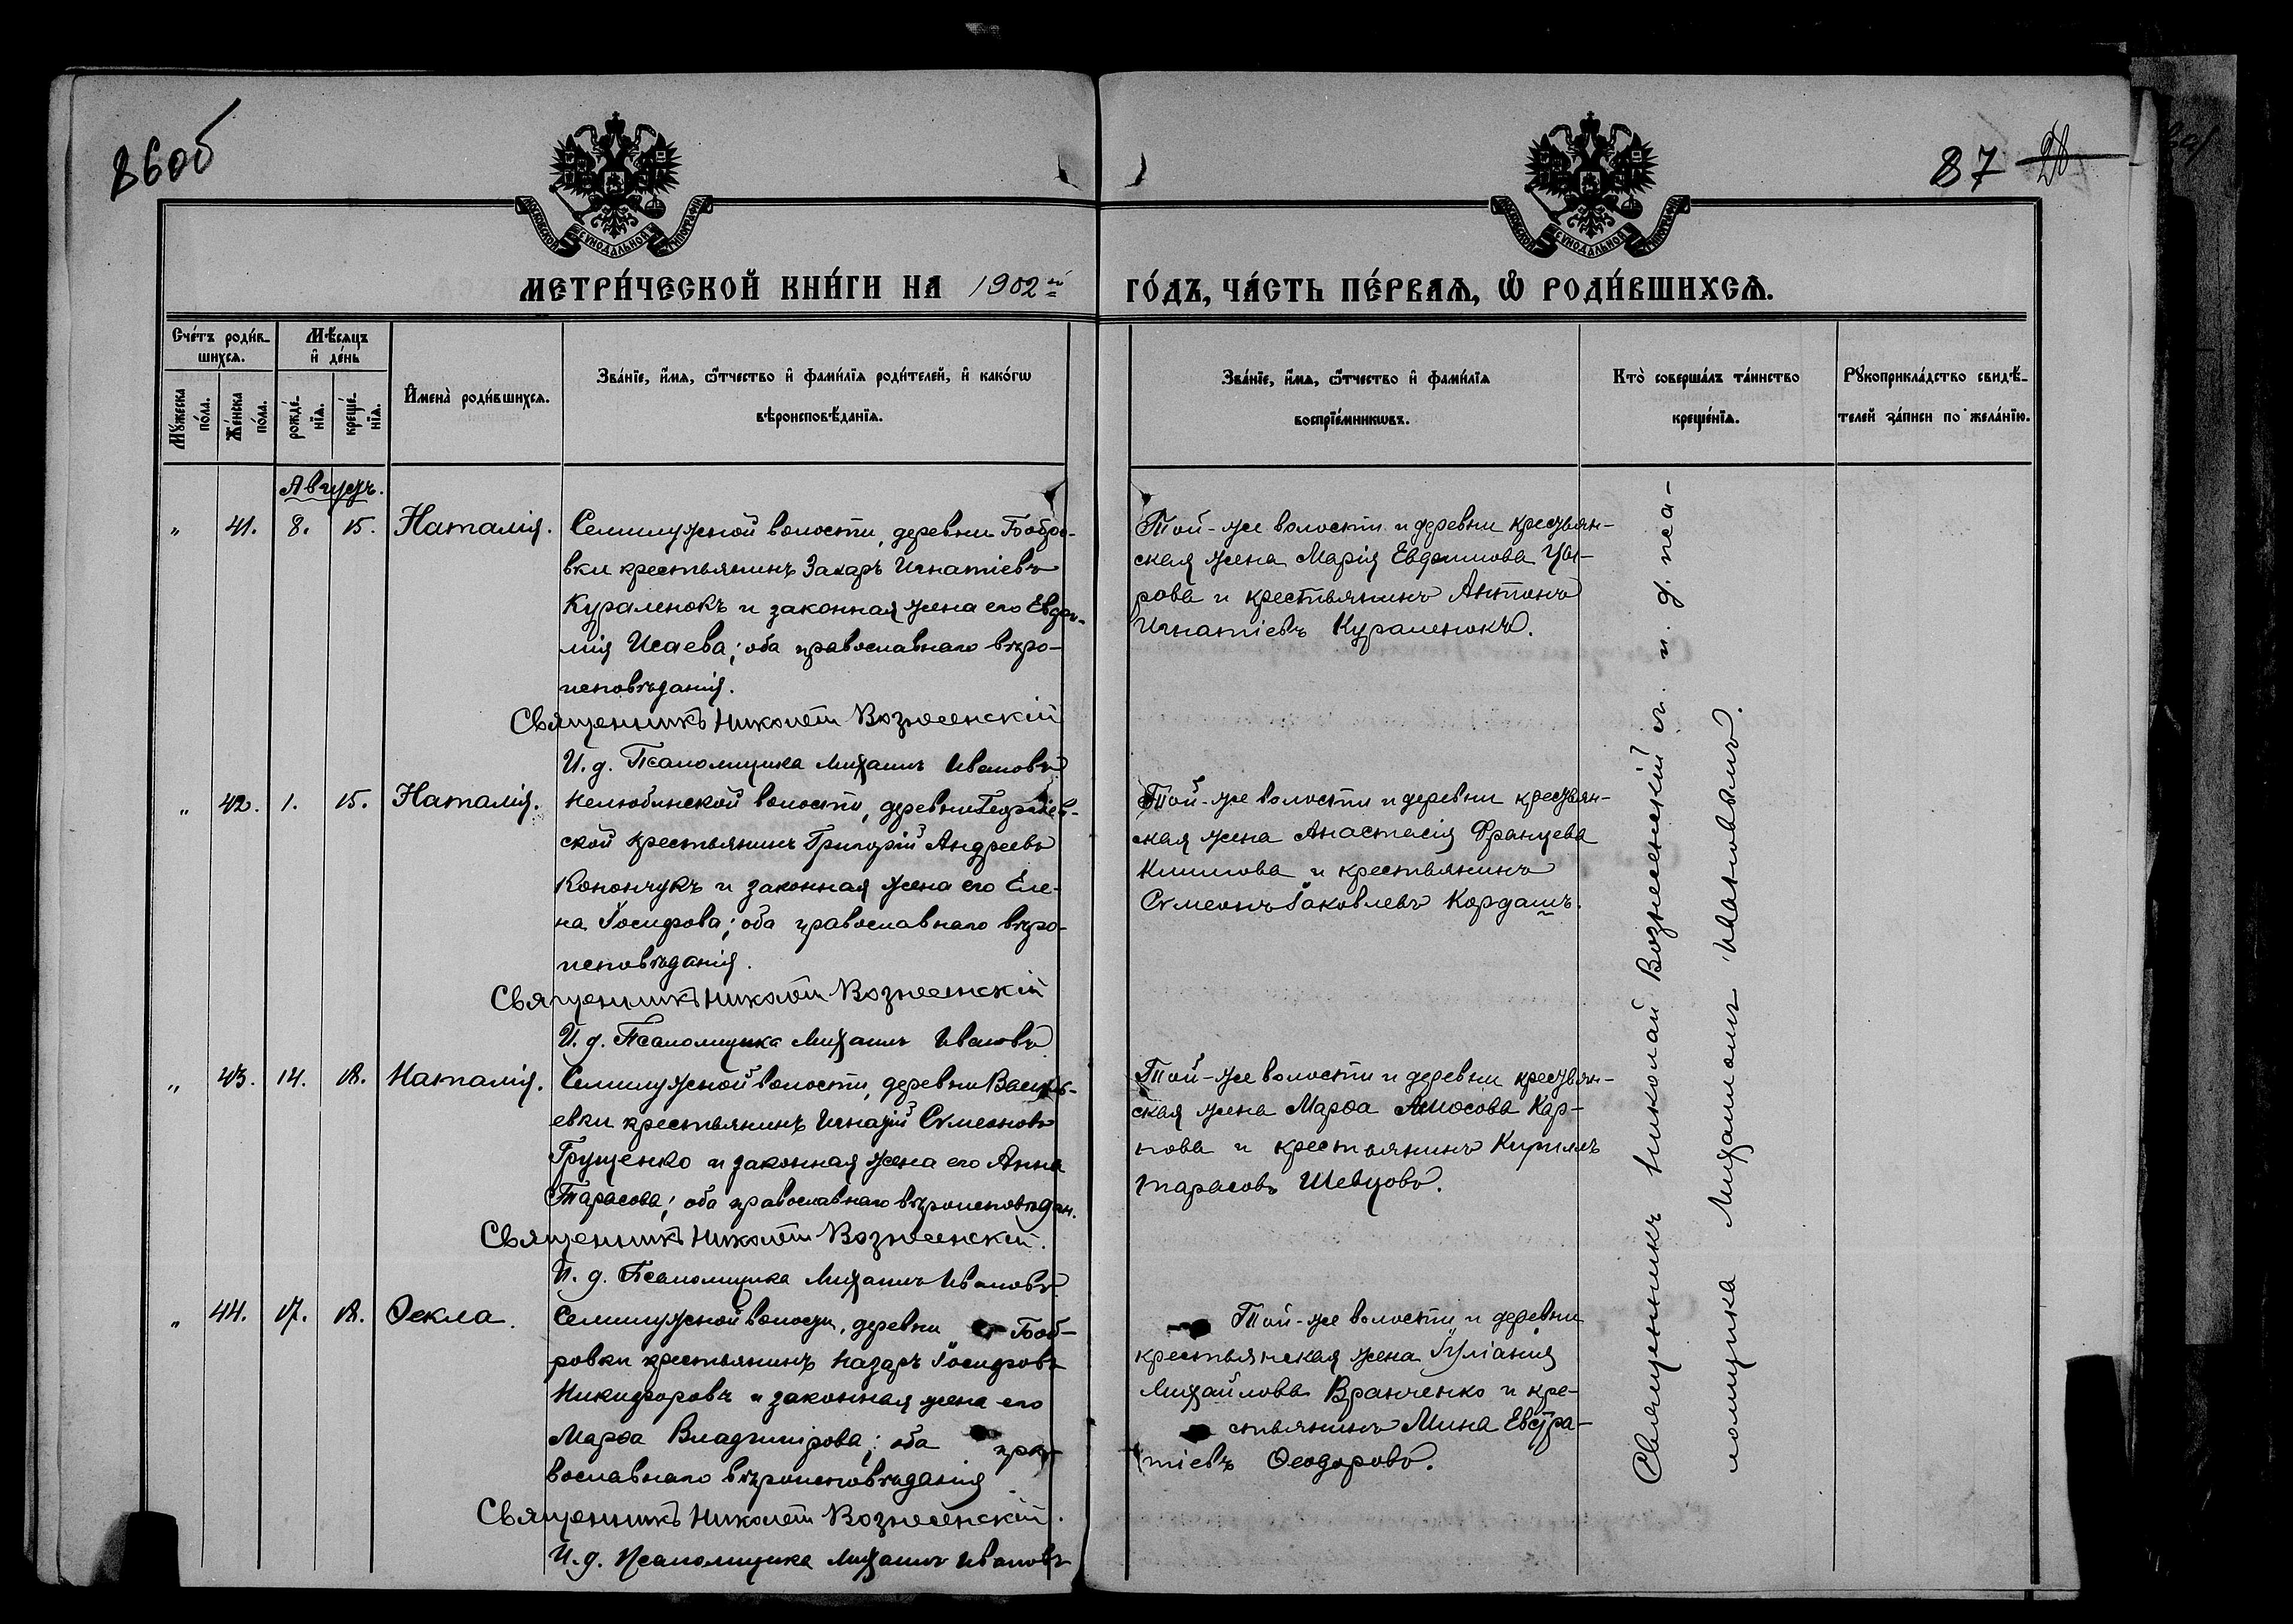 86об
87 28
МОСКОВСКОЙ СѴНОДАЛЬНОЙ ТИПОГРАФІИ
МОСКОВСКОЙ СѴНОДАЛЬНОЙ ТИПОГРАФІИ
МЕТРИ́ЧЕСКОЙ КНИ́ГИ НА 1902й ГО́ДЪ, ЧА́СТЬ ПЕ́РВАѦ, Ѡ РОДИ́ВШИХСѦ.
Счетъ роди́в-
шихсѧ.
Мꙋжеска по́ла.
Же́нска по́ла.
Мѣсѧцъ и҆ де́нь
рожде́-
нїѧ.
креще́-
нїѧ.
И҆мена̀ роди́вшихсѧ.
Зва́нїе, и҆́мѧ, ѻ҆́тчество и҆ фами́лїѧ роди́телей, и҆ како́гѡ
вѣроисповѣ́данїѧ.
Зва́нїе, и҆́мѧ, ѻ҆́тчество и҆ фами́лїѧ
воспрїе́мникѡвъ.
Кто̀ соверша́лъ та́инство
креще́нїѧ.
Рꙋкоприкла́дство свидѣ́-
телей за́писи по жела́нїю.
Августъ.
" 41. 8. 15. Наталія.
Семилужной волости, деревни Бобро-
вки крестьянинъ Захаръ Игнатіевъ
Кураленокъ и законная жена его Евдо-
мія Исаева; оба православнаго вѣро-
исповѣданія.
Священникъ Николай Вознесенскій
И. д. Псаломщика Михаилъ Ивановъ
Той-же волости и деревни крестьян-
ская жена Марія Евдокимова
рова и крестьянинъ Антонъ
Игнатіевъ Кураленокъ.
" 42. 1. 15. Наталія.
Нелюбинской волости, деревни Георгіев-
ской крестьянинъ Григорій Андреевъ
Конончукъ и законная жена его Еле-
на Іосифова; оба православнаго вѣро-
исповѣданія.
Священникъ Николай Вознесенскій
И. д. Псаломщика Михаилъ Ивановъ
Той-же волости и деревни крестьян-
ская жена Анастасія Францева
Климова и крестьянинъ
Сѵмеонъ Іаковлевъ Кордашъ.
" 43. 14. 18. Наталія.
Семилужной волости, деревни Василь-
евки крестьянинъ Игнатій Сѵмеоновъ
Грищенко и законная жена его Анна
Тарасова; оба православнаго вѣроисповѣдан.
Священникъ Николай Вознесенскій.
И. д. Псаломщика Михаилъ Ивановъ
Той-же волости и деревни крестьян-
ская жена Марѳа Амосова Кар-
пова и крестьянинъ Кириллъ
Тарасовъ Шевцовъ.
" 44. 17. 18. Ѳекла.
Семилужной волости, деревни Боб-
ровки крестьянинъ Назаръ Іосифовъ
Никифоровъ и законная жена его
Марѳа Владимірова; оба пра-
вославнаго вѣроисповѣданія
Священникъ Николай Вознесенскій.
И. д. Псаломщика Михаилъ Ивановъ
Той-же волости и деревни
крестьянская жена Іуліанія
Михайлова Вранченко и кре-
стьянинъ Мина Евстра-
тіевъ Ѳеодоровъ.
Священникъ Николай Вознесенскій съ и. д. пса-
ломщика Михаиломъ Ивановымъ.